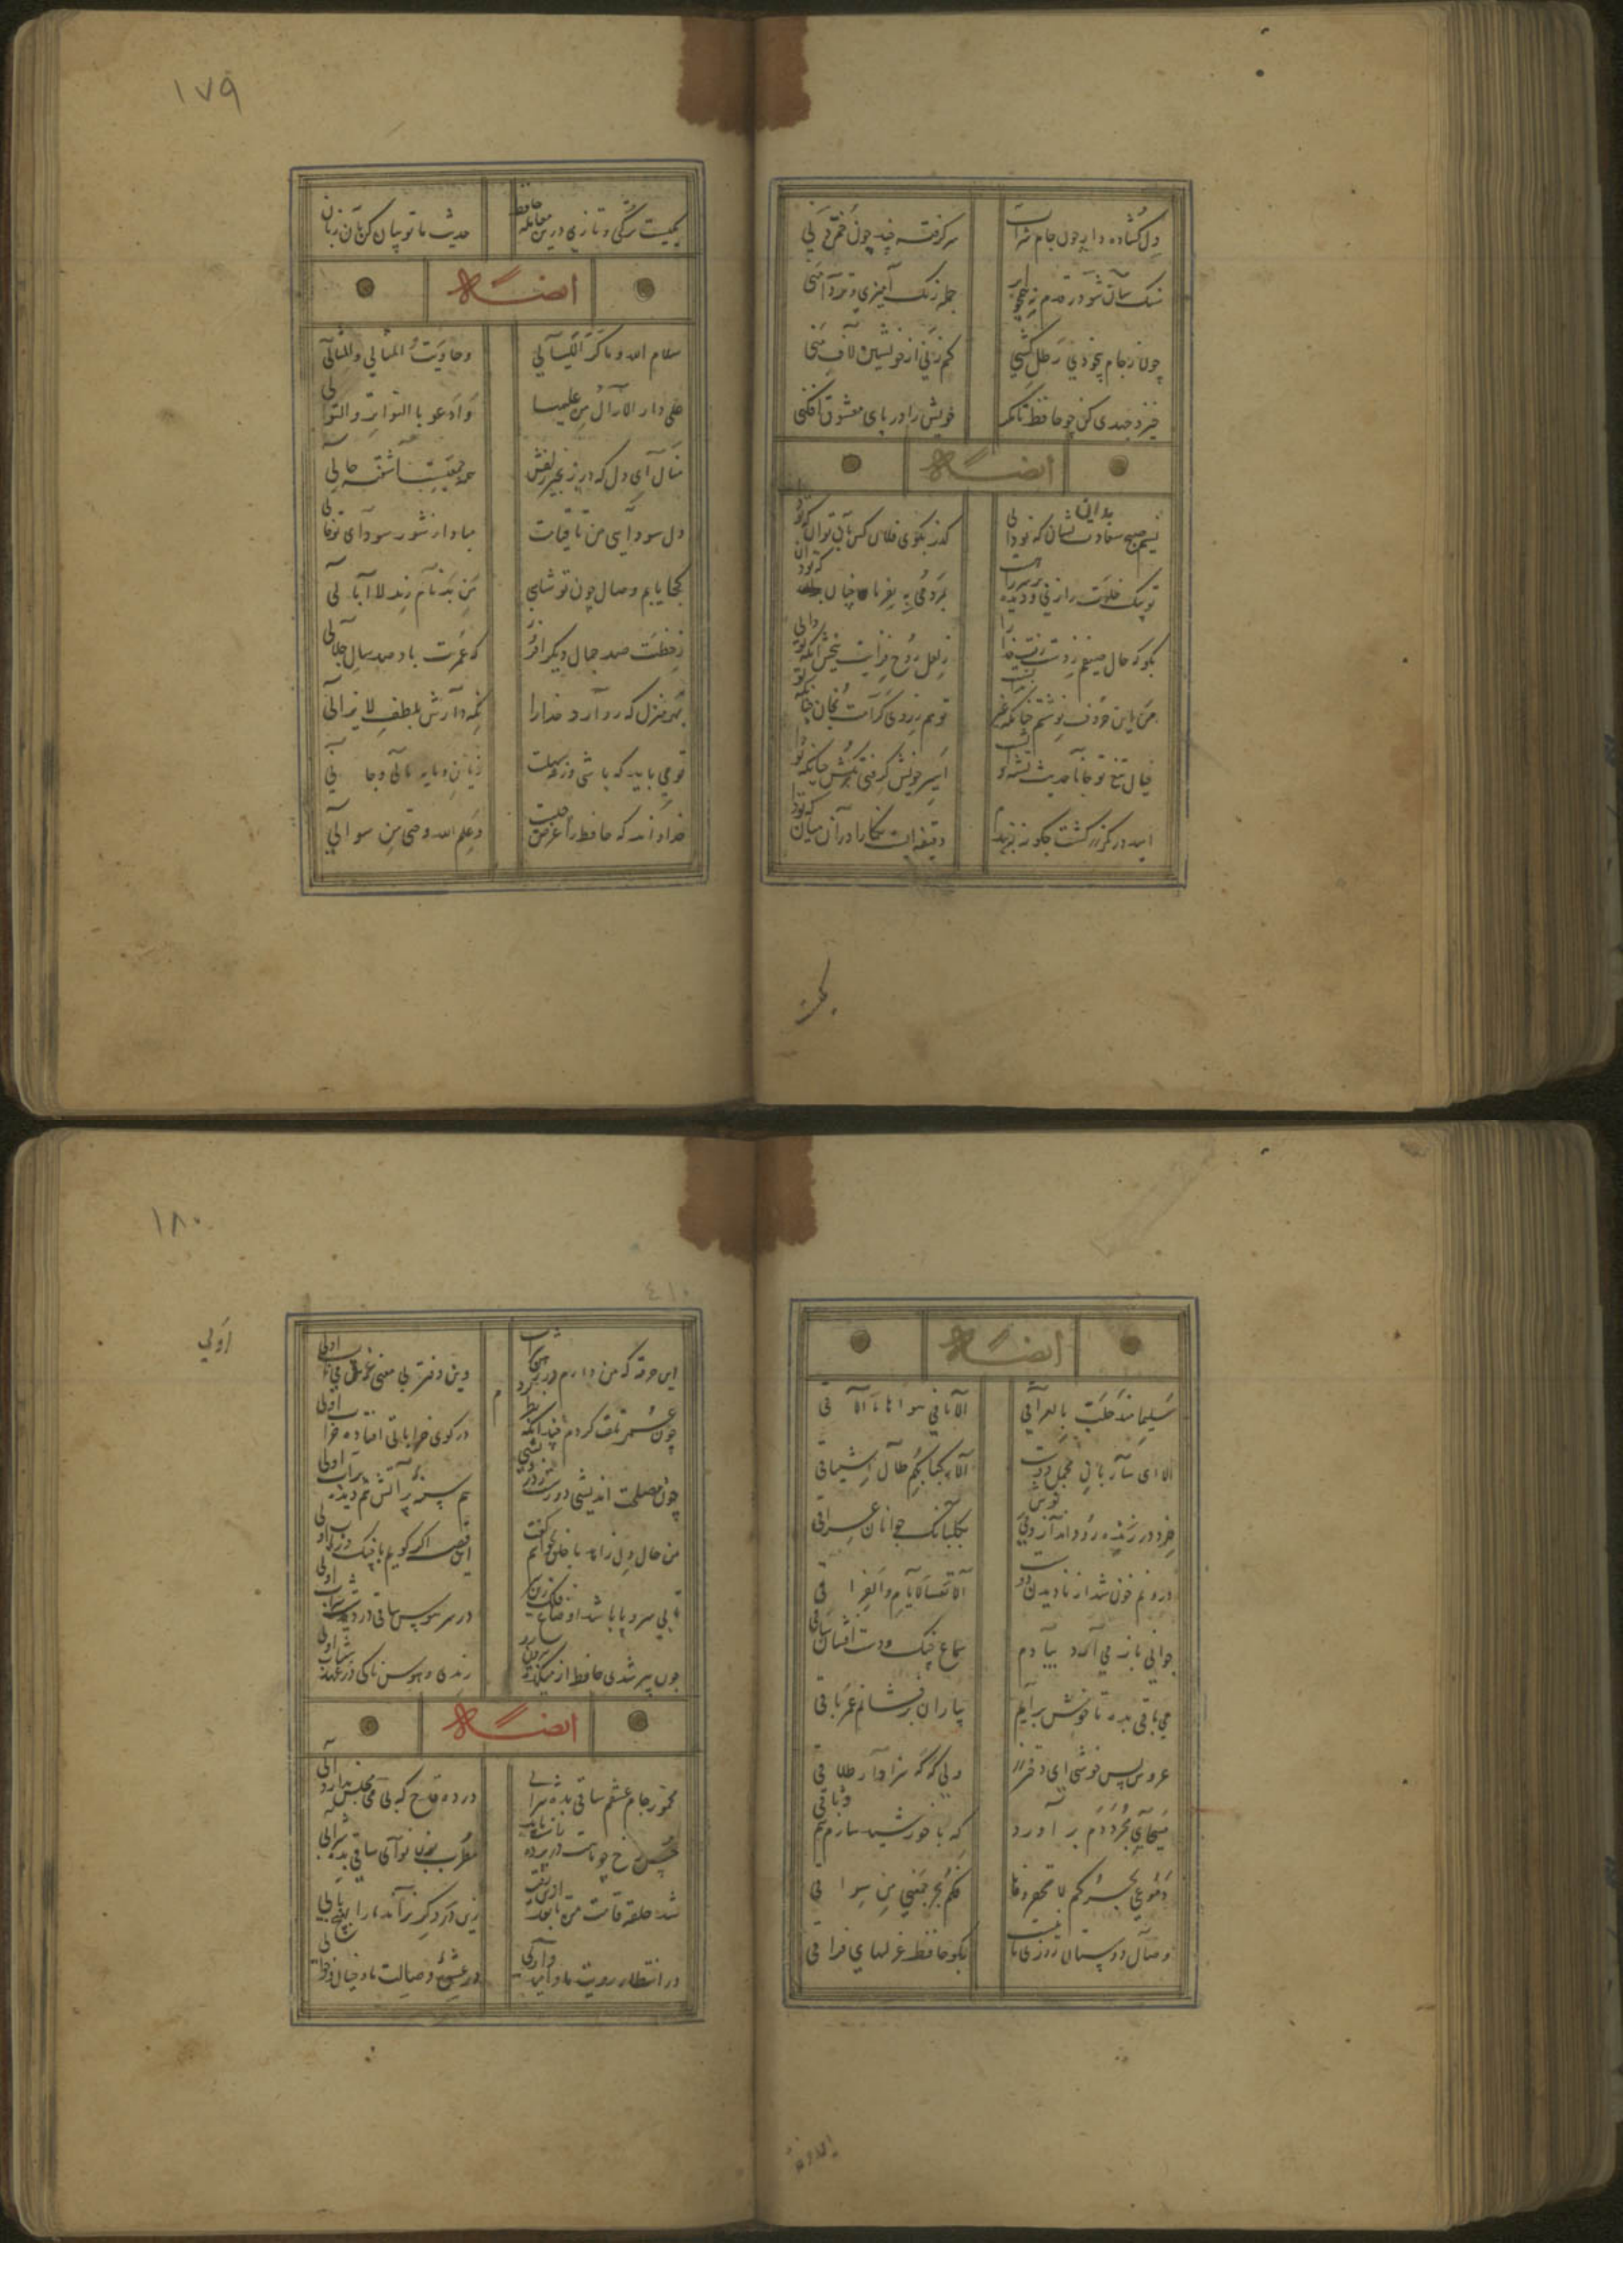 دل گشاده دار چون جام شراب
سر گرفته چند چون خم دنی
سنگ سان شو در قدم نی همچو آب
جمله رنگ آمیزی و تردامنی
چون ز جام بیخودی رطل کشی
کم زنی از خویشتن لاف منی
خیز و جهدی کن چو حافظ تا مگر
خویش را در پای معشوق افکنی
ایضا له
نسیم صبح سعادت بدان نشان که تو دانی
گذر بکوی فلان کن بآن زمان که تو دانی
بگو که جان
ز لعل روح فزایت ببخش از آنکه تو دانی
من این حروف نوشتم چنانکه غیر ندانست
تو هم ز روی کرامت بخوان چنانکه تو دانی
خیال تیغ تو با ما حدیث تشنه و آبست
اسیر خویش گرفتی بکش چنانکه تو دانی
امید در کمر زرکشت چگونه نبندم
دقیقه ایست نگارا در آن میان که تو دانی
یکیست
١٧٩
یکیست ترکی و تازی درین معامله حافظ
حدیث عشق بیان کن بدان زبان
ایضا له
سلام الله ما کر اللیالی
وجاوبت المثانی والمثالی
علی دار الاراک من علیها
وادعو بالتواتر والتوالی
منال ای دل که در زنجیر زلفش
همه جمعیتست آشفته حالی
دل سودایی من تا قیامت
مبادا از شور سودای تو خالی
کجا یابم وصال چون تو شاهی
من بدنام رند لاابالی
ز خطت صد جمال دیگر افزود
که عمرت باد صد سال جلالی
بهر منزل که رو آرد خدا را
نگه دارش بلطف لایزالی
تو می باید که باشی ورنه سهلست
زیان مایه مالی و جانی
خداوند که حافظ را غرض چیست
وعلم الله حسبی من سوالی
ایضا له
سلیمی منذ حلت بالعراق
الاقی من هواها ما الاقی
الا ای ساربان محمل دوست
الی رکبانکم طال اشتیاقی
خرد در زنده رود انداز و می نوش
بگلبانگ جوانان عراقی
درونم خون شد از نادیدن دوست
الا تعسا لایام الفراق
جوانی باز می آرد بیادم
سماع چنگ و دست افشان ساقی
می باقی بده تا خوش برآیم
بیاران برفشانم عمر باقی
عروس بس خوشی ای دختر رز
ولی گه گه سزاوار طلاقی
مسیحای مجرد را برآورد
که با خورشید سازم هم وثاقی
دموعی بعدکم لا تحقروها
فکم بحر جمعنا من سواقی
وصال دوستان روزی ما نیست
بگو حافظ غزلهای فراقی
این خرقه
١٨٠
٤١٠
اولی
این خرقه که من دارم در رهن شراب اولی
وین دفتر بی معنی غرق می ناب اولی
چون عمر تبه کردم چندانکه نگه کردم
در کنج خراباتی افتاده خراب اولی
چون مصلحت اندیشی دورست ز درویشی
هم سینه پر آتش هم دیده پرآب اولی
من حال دل زاهد با خلق نخواهم گفت
این قصه اگر گویم با چنگ و رباب اولی
تا بی سر و پا باشد اوضاع فلک زین سان
در سر هوس ساقی در دست شراب اولی
چون پیر شدی حافظ از میکده بیرون رو
رندی و هوس ناکی در عهد شباب اولی
ایضا له
مخمور جام عشقم ساقی بده شرابی
در ده قدح که بی می مجلس ندارد آبی
مطرب بزن نوای ساقی بده شرابی
شد حلقه قامت من تا بعد ازین رقیبت
زین در دگر نراند ما را بهیچ بابی
در انتظار رویت ما و امیدواری
در عشوه وصالت ما و خیال و خوابی